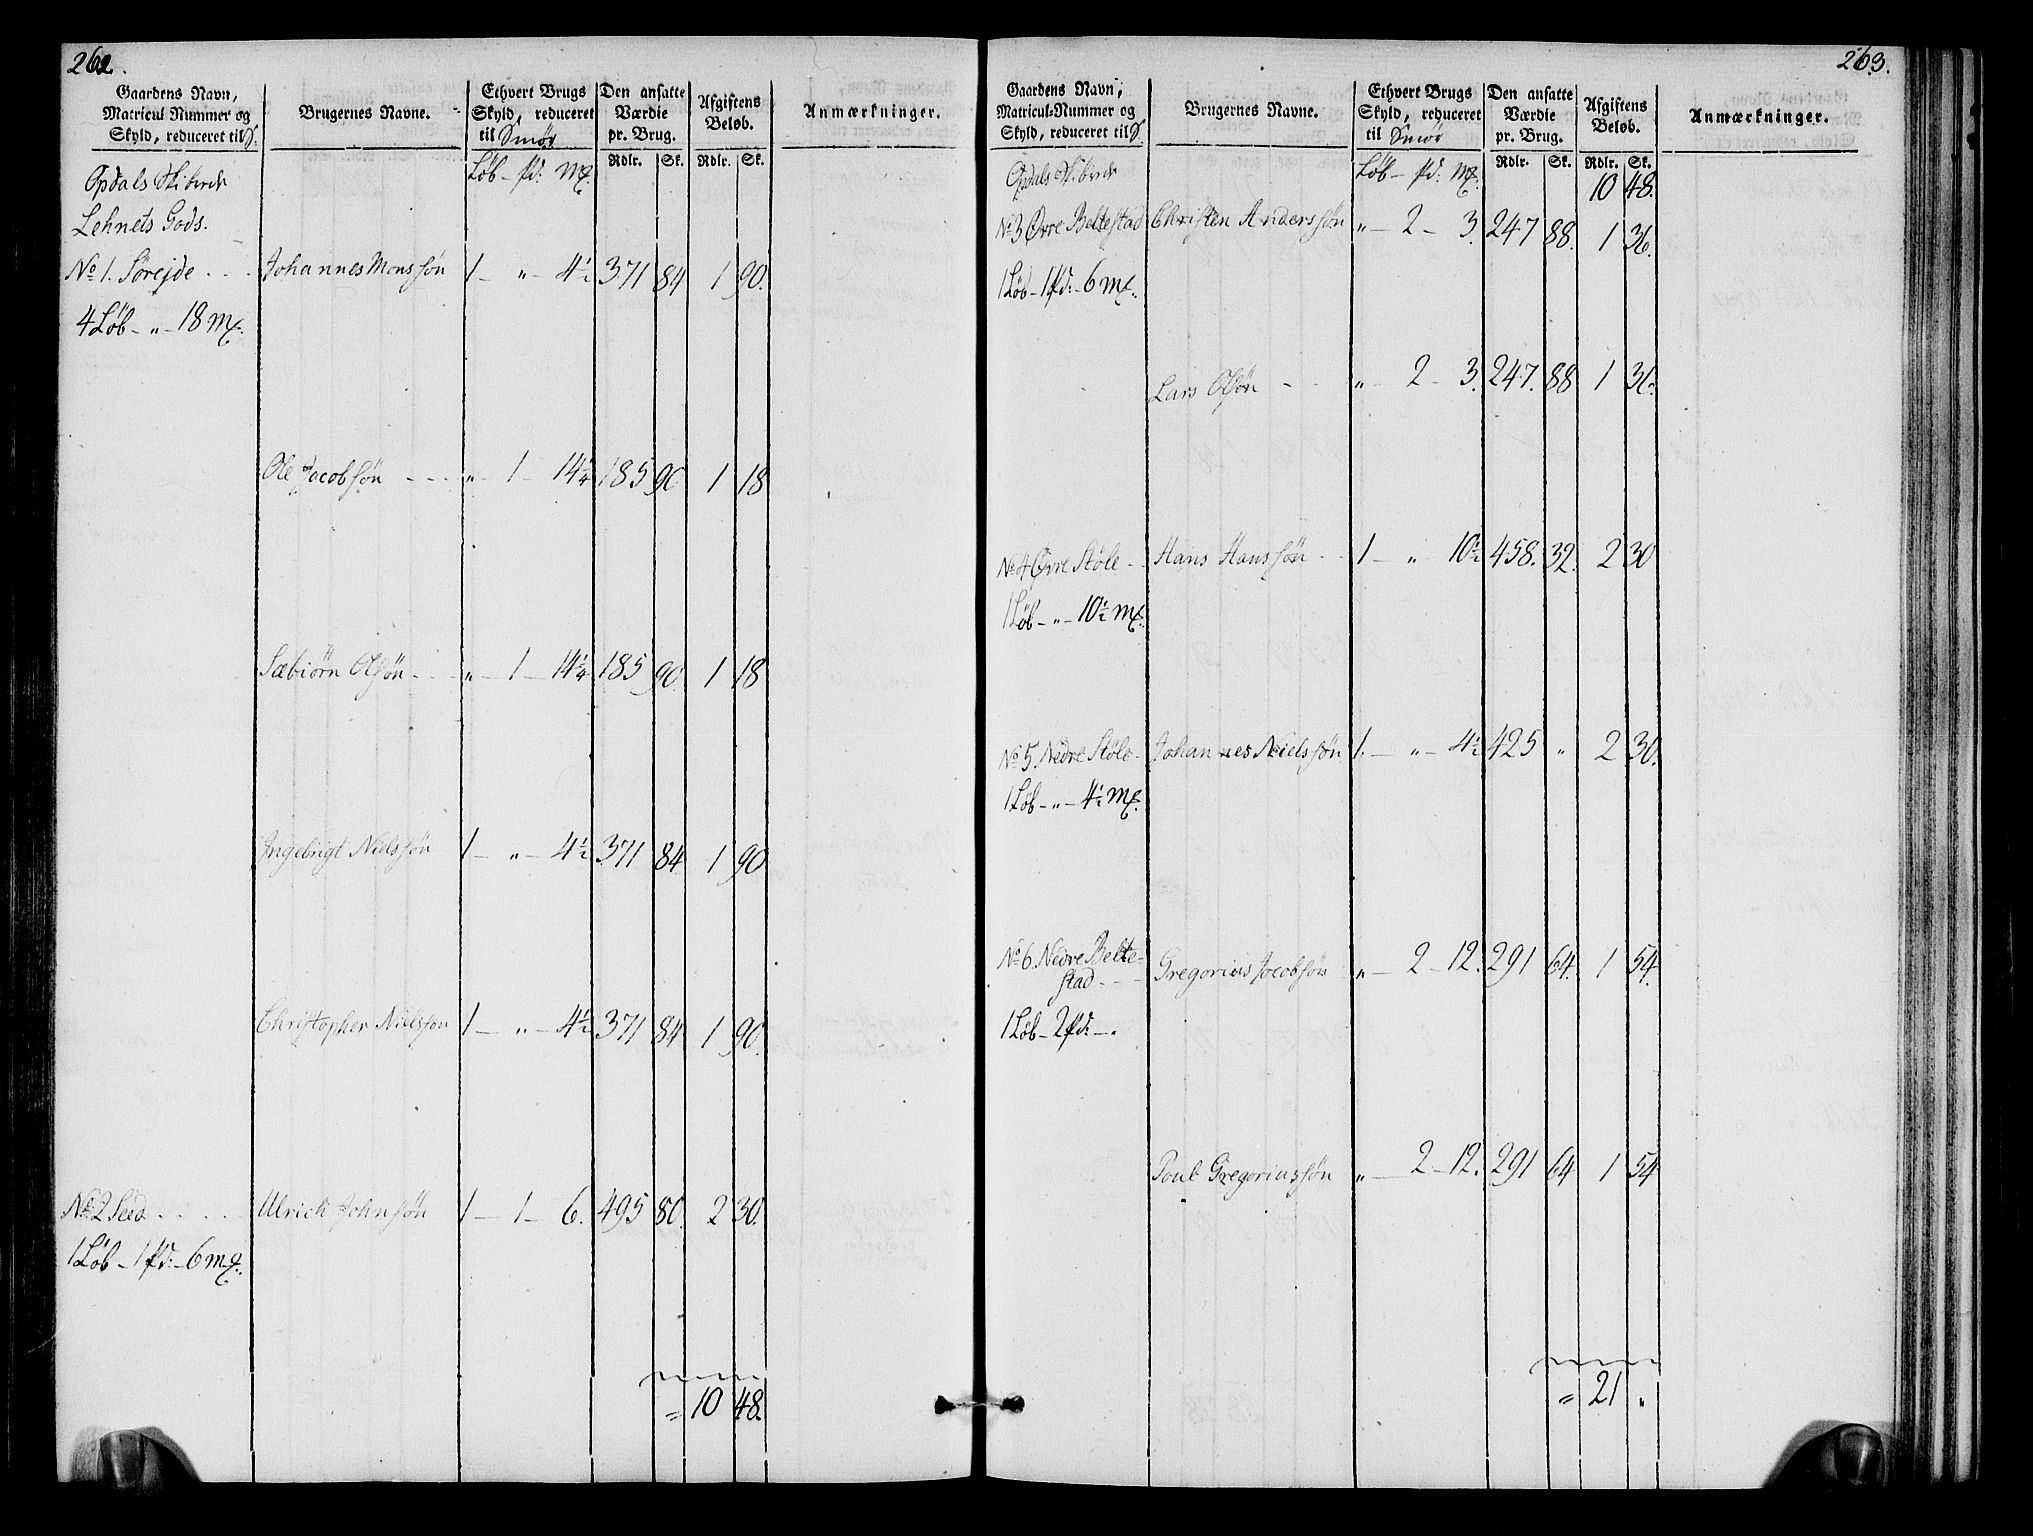 262.
Gaardens Navn, Matricul Nummer og Skyld, reduceret til S:
Brugernes Navne.
Ethvert Brugs Skyld, reduceret til Smør
Den ansatte Værdie pr. Brug.
Afgiftens Beløb.
Anmærkninger.
Rdlr. Sk. Rdlr. Sk.
Opdals Skibrede Løb - pd: mk.
Lehnets Gods.
No 1. Sörejde . . . Johannes Monssøn 1 - „ - 4½ 371 84 1 90.
4 Løb - „ - 18 mk.
Ole Jacobssøn - - - „ - 1 - 14¼ 185 90 1 18
Sæbiörn Olssøn - - - „ - 1 - 14¼ 185 90. 1 18
Ingebrigt Nielssøn 1 - „ - 4½ 371 84 1 90
Christopher Nielsson 1 - „ - 4½ 371 84 1 90.
No 2 Seid . . . . Ulrick Johnssøn 1 - 1 - 6. 495 80. 2 30.
1 Løb - 1 pd: - 6 mk.
= 10 48.
263.
Gaardens Navn, Matricul-Nummer og Skyld, reduceret til S:
Brugernes Navne.
Ethvert Brugs Skyld, reduceret til Smør
Den ansatte Værdie pr. Brug.
Afgiftens Beløb.
Anmærkninger.
Rdlr. Sk. Rdlr. Sk.
Opdals Skibrede Løb - pd: mk. 10 48.
No 3 Øvre Beltestad Christen Anderssøn „ - 2 - 3. 247 88. 1 36.
1 Løb - 1 pd: - 6 mk.
Lars Olssøn - - - „ - 2 - 3. 247. 88 1 36.
No 4 Øvre Støle - - Hans Hanssøn - - 1 - „ 10½ 458. 32. 2 30
1 Løb - „ - 10½ mk.
No 5. Nedre Støle - Johannes Nielssøn 1. - „ - 4½ 425 „ 2 30.
1 Løb - „ - 4½ mk.
No 6. Nedre Belte-
stad - - - Gregorius Jacobssøn „ - 2 - 12. 291 64. 1 54
1 Løb - 2 pd: - „
Poul Gregoriussøn „ - 2 - 12. 291 64 1 54
= 21 „